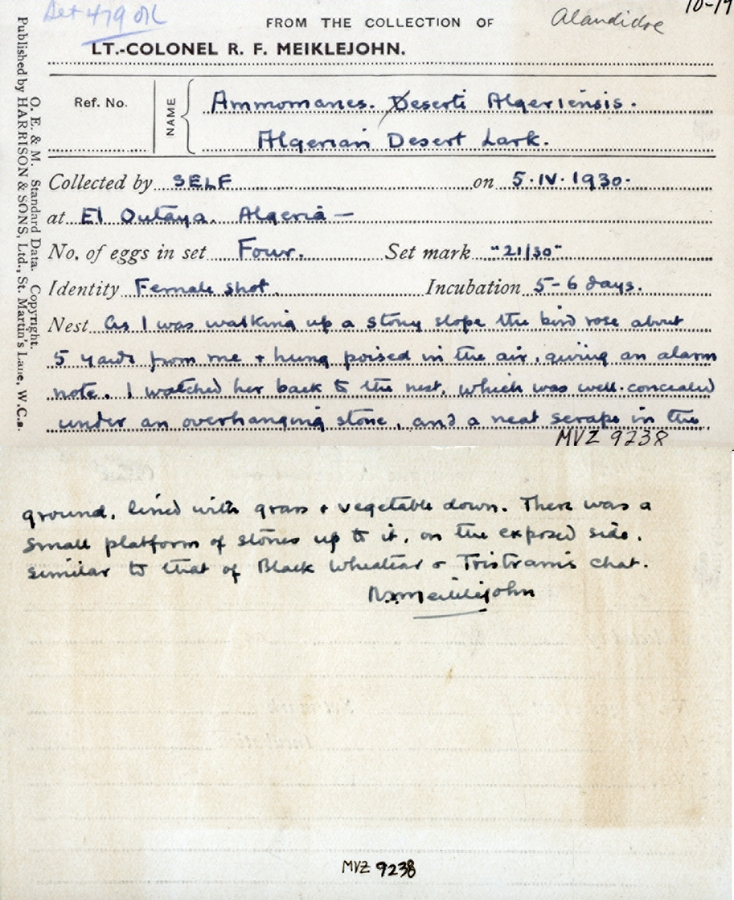 Set 479 OK
Alaudidae
10-19
FROM THE COLLECTION OF
LT.-COLONEL R. F. MEIKLEJOHN.
Ref. No.
NAME
Ammomanes. Deserti Algeriensis.
Algerian Desert Lark.
Collected by SELF on 5.IV.1930.
at El Outaya. Algeria —
No. of eggs in set Four. Set mark "21/30"
Identity Female shot. Incubation 5-6 days.
Nest As I was walking up a stony slope the bird rose about
5 yards from me + hung poised in the air, giving an alarm
note. I watched her back to the nest, which was well-concealed
under an overhanging stone, and a neat scrape in the
MVZ 9238
O. E. & M. Standard Data. Copyright.
Published by HARRISON & SONS, Ltd., St. Martin's Lane, W.C.2.
ground, lined with grass + vegetable down. There was a
small platform of stones up to it, on the exposed side,
similar to that of Black Wheatear or Tristram's chat.
R.F. Meiklejohn
MVZ 9238